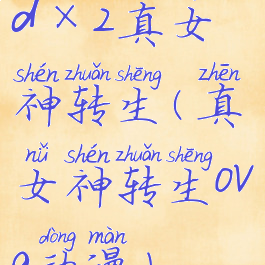 d×2真女
shén zhuǎn shēng zhēn
神转生(真
nǚ shén zhuǎn shēng
女神转生ov
dòng màn
a动漫)